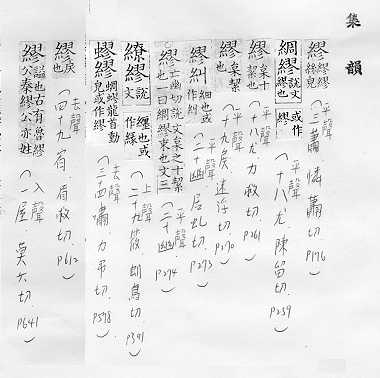 集韻
繆 繆繆絲皃 平聲(三蕭 憐蕭切. P176)
綢繆 說文繆也 或作繆 平聲(十八尤. 陳留切. P259)
繆 枲十絜也 平聲(十八尤力救切. P261)
繆 枲絜也 平聲(十九侯 迷浮切. P270)
糾繆 細也或作糾 平聲(二十幽 居虬切. P273)
繆 亡幽切說文枲之十絜也一曰綢繆束也文三 平聲(二十幽 P274)
繚繆 說文纏也或作繆 上聲(二十九筱. 朗鳥切. P391)
蟉繆 蜩蟉龍首動皃或作繆 去聲(三四嘯. 力弔切. P578)
繆 戾也 去聲(四十九宥. 眉救切. P612)
繆 謚也古有魯繆公秦繆公亦姓 入聲(一屋 莫六切 P641)